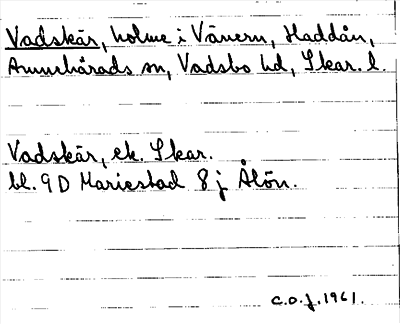 Vadskär, holme i Vänern, Haddån,
Amnehärads sn, Vadsbo hd, Skar. l.
Vadskär, ek. Skar.
bl. 9D Mariestad 8 j Ålön.
C.O.J. 1961.